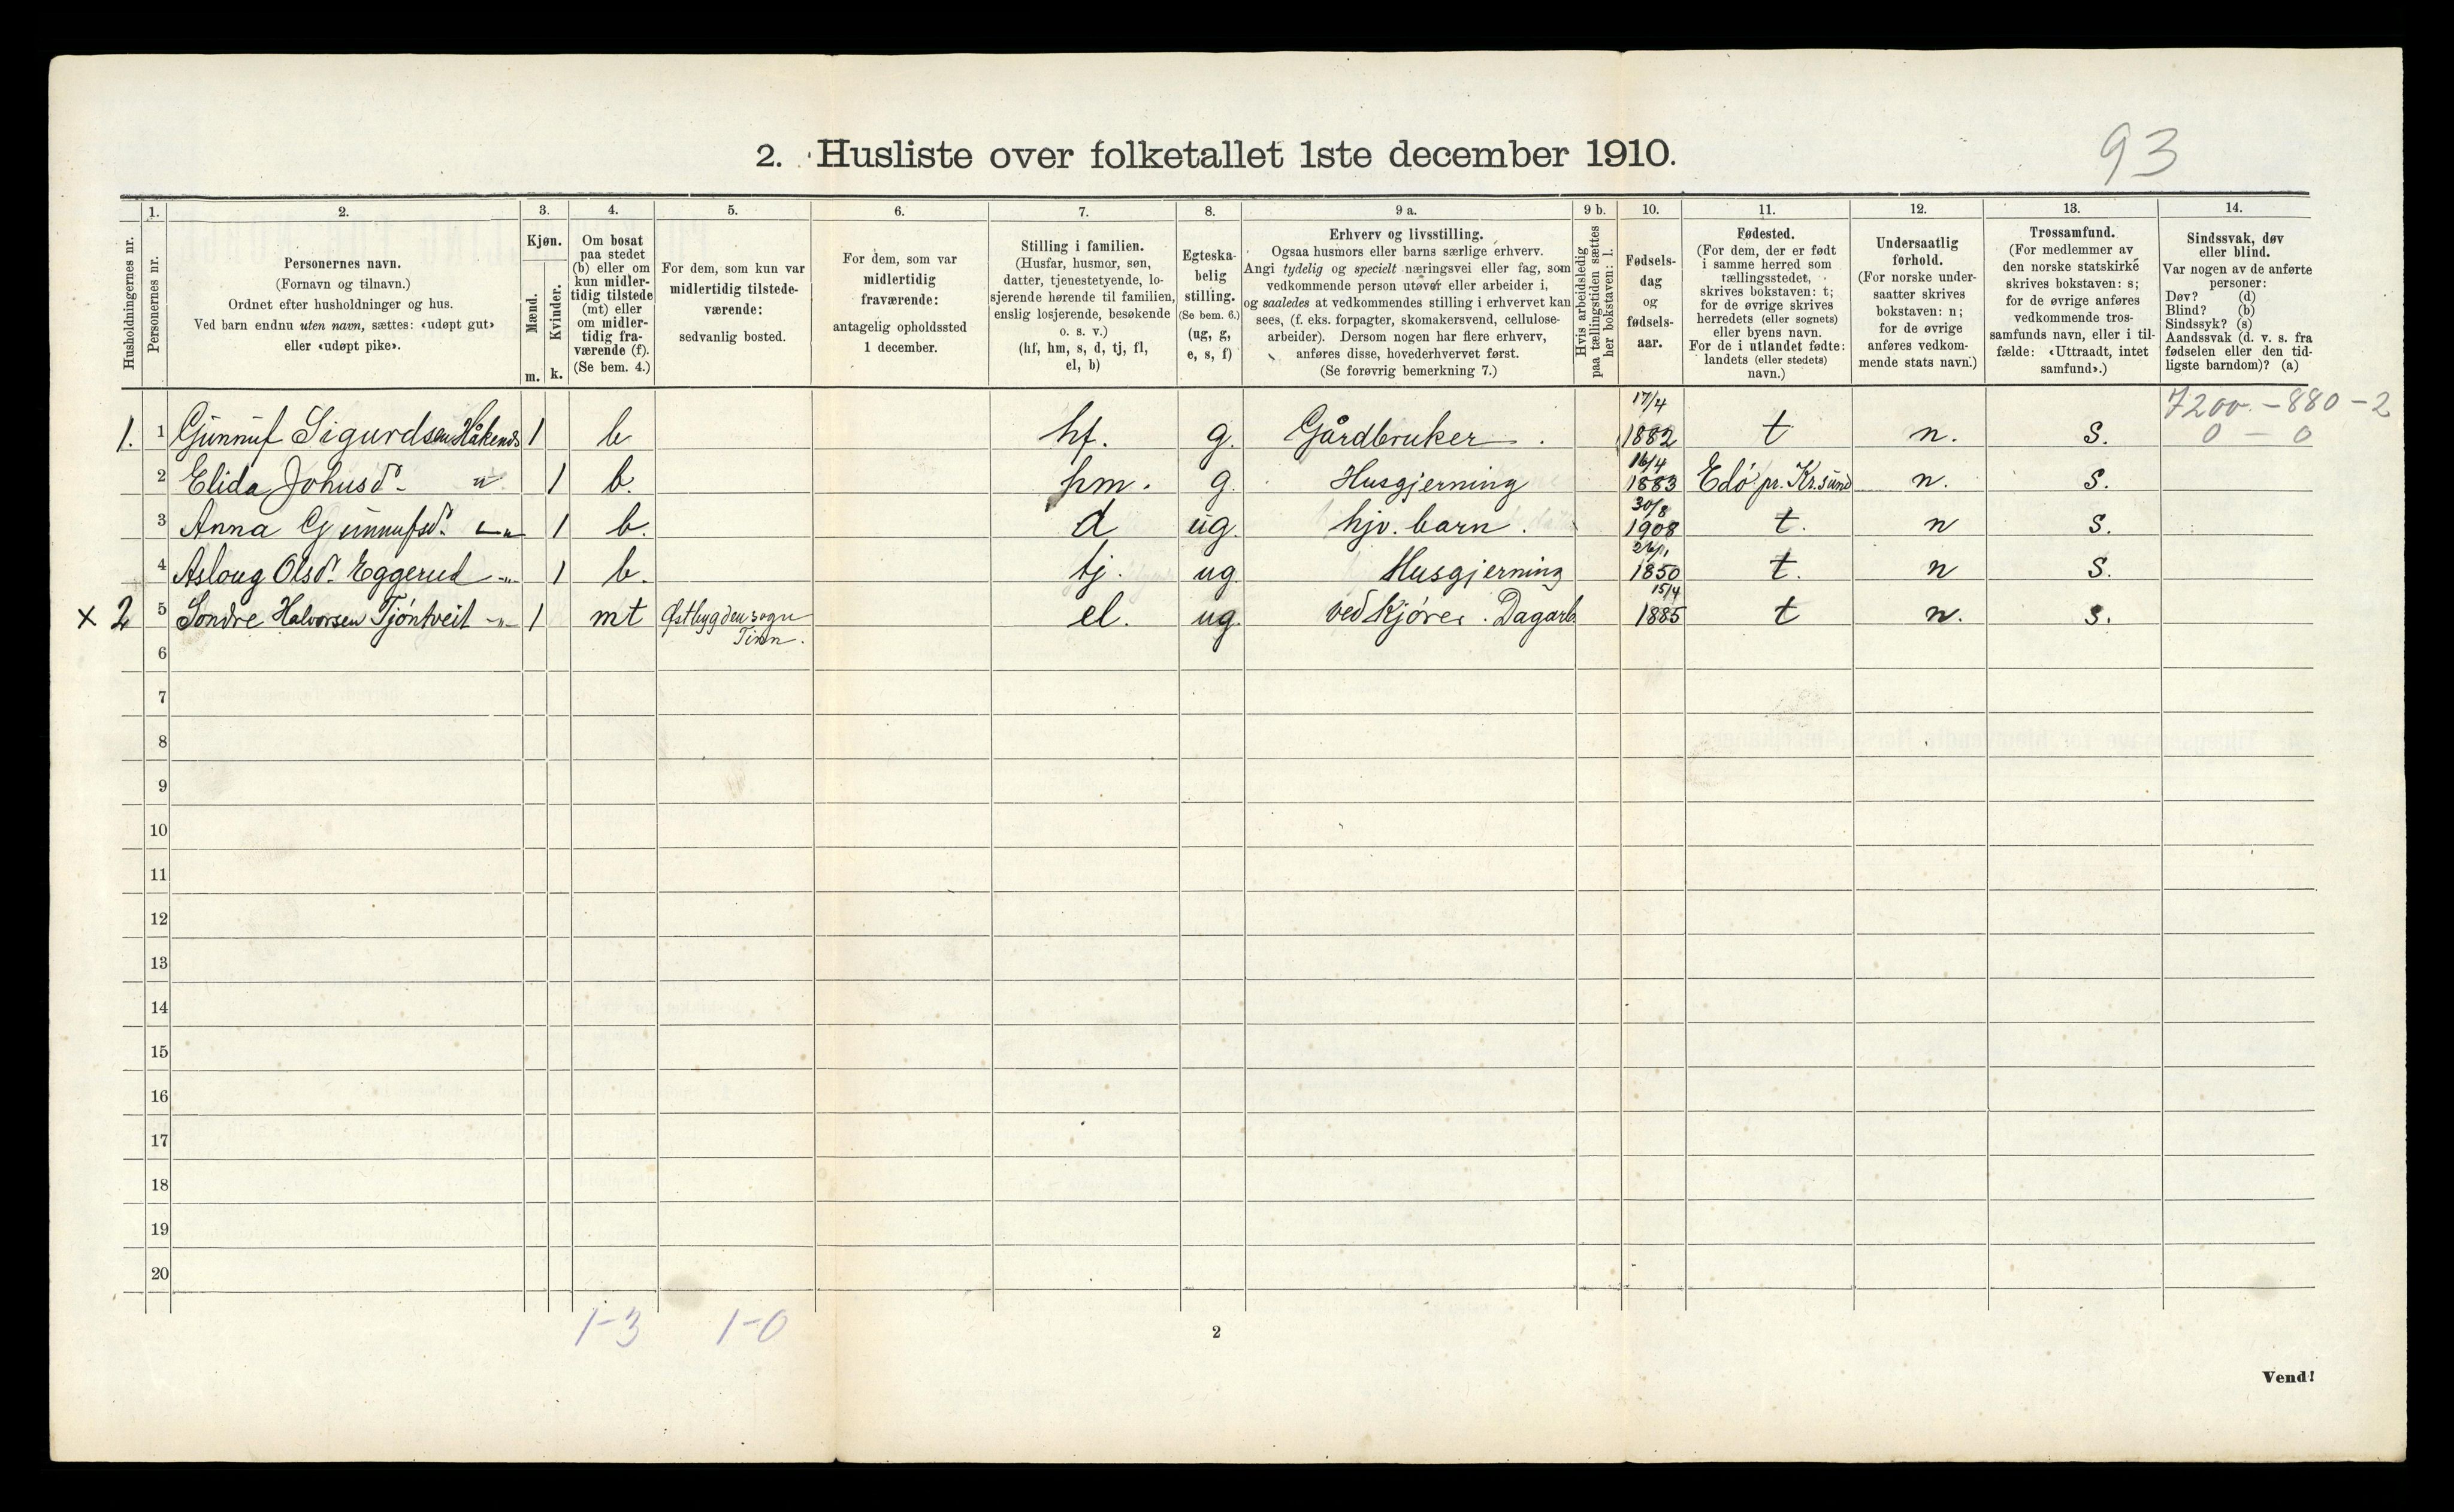 93
2. Husliste over folketallet 1ste december 1910.
Husholdningernes nr.
1.
Personernes nr.
2.
Personernes navn.
(Fornavn og tilnavn.)
Ordnet efter husholdninger og hus.
Ved barn endnu uten navn, sættes: «udøpt gut»
eller «udøpt pike».
3.
Kjøn.
Mænd.
Kvinder.
m. k.
4.
Om bosat
paa stedet
(b) eller om
kun midler-
tidig tilstede
(mt) eller
om midler-
tidig fra-
værende (f).
(Se bem. 4.)
5.
For dem, som kun var
midlertidig tilstede-
værende:
sedvanlig bosted.
6.
For dem, som var
midlertidig
fraværende:
antagelig opholdssted
1 december.
7.
Stilling i familien.
(Husfar, husmor, søn,
datter, tjenestetyende, lo-
sjerende hørende til familien,
enslig losjerende, besøkende
o. s. v.)
(hf, hm, s, d, tj, fl,
el, b)
8.
Egteska-
belig
stilling.
(Se bem. 6.)
(ug, g,
e, s, f)
9 a.
Erhverv og livsstilling.
Ogsaa husmors eller barns særlige erhverv.
Angi tydelig og specielt næringsvei eller fag, som
vedkommende person utøver eller arbeider i,
og saaledes at vedkommendes stilling i erhvervet kan
sees, (f. eks. forpagter, skomakersvend, cellulose-
arbeider). Dersom nogen har flere erhverv,
anføres disse, hovederhvervet først.
(Se forøvrig bemerkning 7.)
9 b.
Hvis arbeidsledig
paa tællingstiden sættes
her bokstaven: l.
10.
Fødsels-
dag
og
fødsels-
aar.
11.
Fødested.
(For dem, der er født
i samme herred som
tællingsstedet,
skrives bokstaven: t;
for de øvrige skrives
herredets (eller sognets)
eller byens navn.
For de i utlandet fødte:
landets (eller stedets)
navn.)
12.
Undersaatlig
forhold.
(For norske under-
saatter skrives
bokstaven: n;
for de øvrige
anføres vedkom-
mende stats navn.)
13.
Trossamfund.
(For medlemmer av
den norske statskirke
skrives bokstaven: s;
for de øvrige anføres
vedkommende tros-
samfunds navn, eller i til-
fælde: «Uttraadt, intet
samfund».)
14.
Sindssvak, døv
eller blind.
Var nogen av de anførte
personer:
Døv? (d)
Blind? (b)
Sindssyk? (s)
Aandssvak (d. v. s. fra
fødselen eller den tid-
ligste barndom)? (a)
7200 - 880 - 2
0 - 0
1. 1 Gunnuf Sigurdsen Håkends 1 b hf. g. Gårdbruker . 17/4 1882 t n. s.
2 Elida Johusd. " 1 b. hm. g. Husgjerning 16/4 1883 Edø pr. Kr.sund n. s.
3 Anna Gunnufsd. -"- 1 b. d ug. hjv. barn . 30/8 1908 t. n s.
4 Asloug Olsd. Eggerud -"- 1 b. tj. ug. Husgjerning 1850 t. n s.
x 2 5 Sondre Halvorsen Tjöntveit -"- 1 mt Østbygdensogn Tinn. el. ug. ved Kjører . Dagarb. 15/4 1885 t n. s.
6
7
8
9
10
11
12
13
14
15
16
17
18
19
20
1-3 1-0
2
Vend!